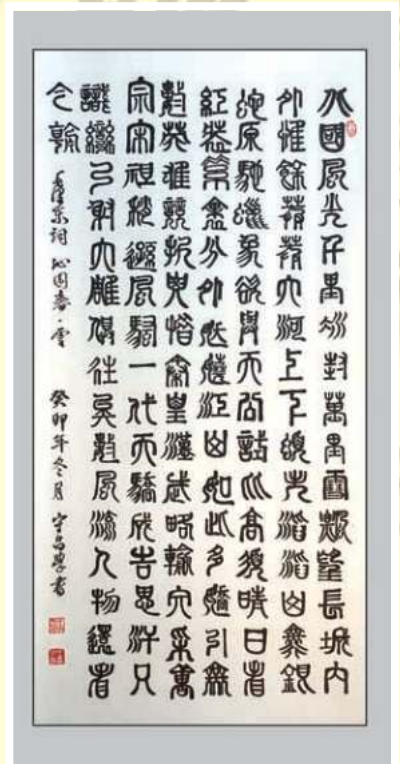 北國風光千里冰封萬里雪飄望長城內
外惟餘莽莽大河上下頓失滔滔山舞銀
蛇原馳蠟象欲與天公試比高須晴日看
紅裝素裹分外妖嬈江山如此多嬌引無
數英雄競折腰惜秦皇漢武略輸文采唐
宗宋祖稍遜風騷一代天驕成吉思汗只
識彎弓射大雕俱往矣數風流人物還看
今朝 毛澤东詞 沁园春·雪 癸卯年冬月 守昌學書